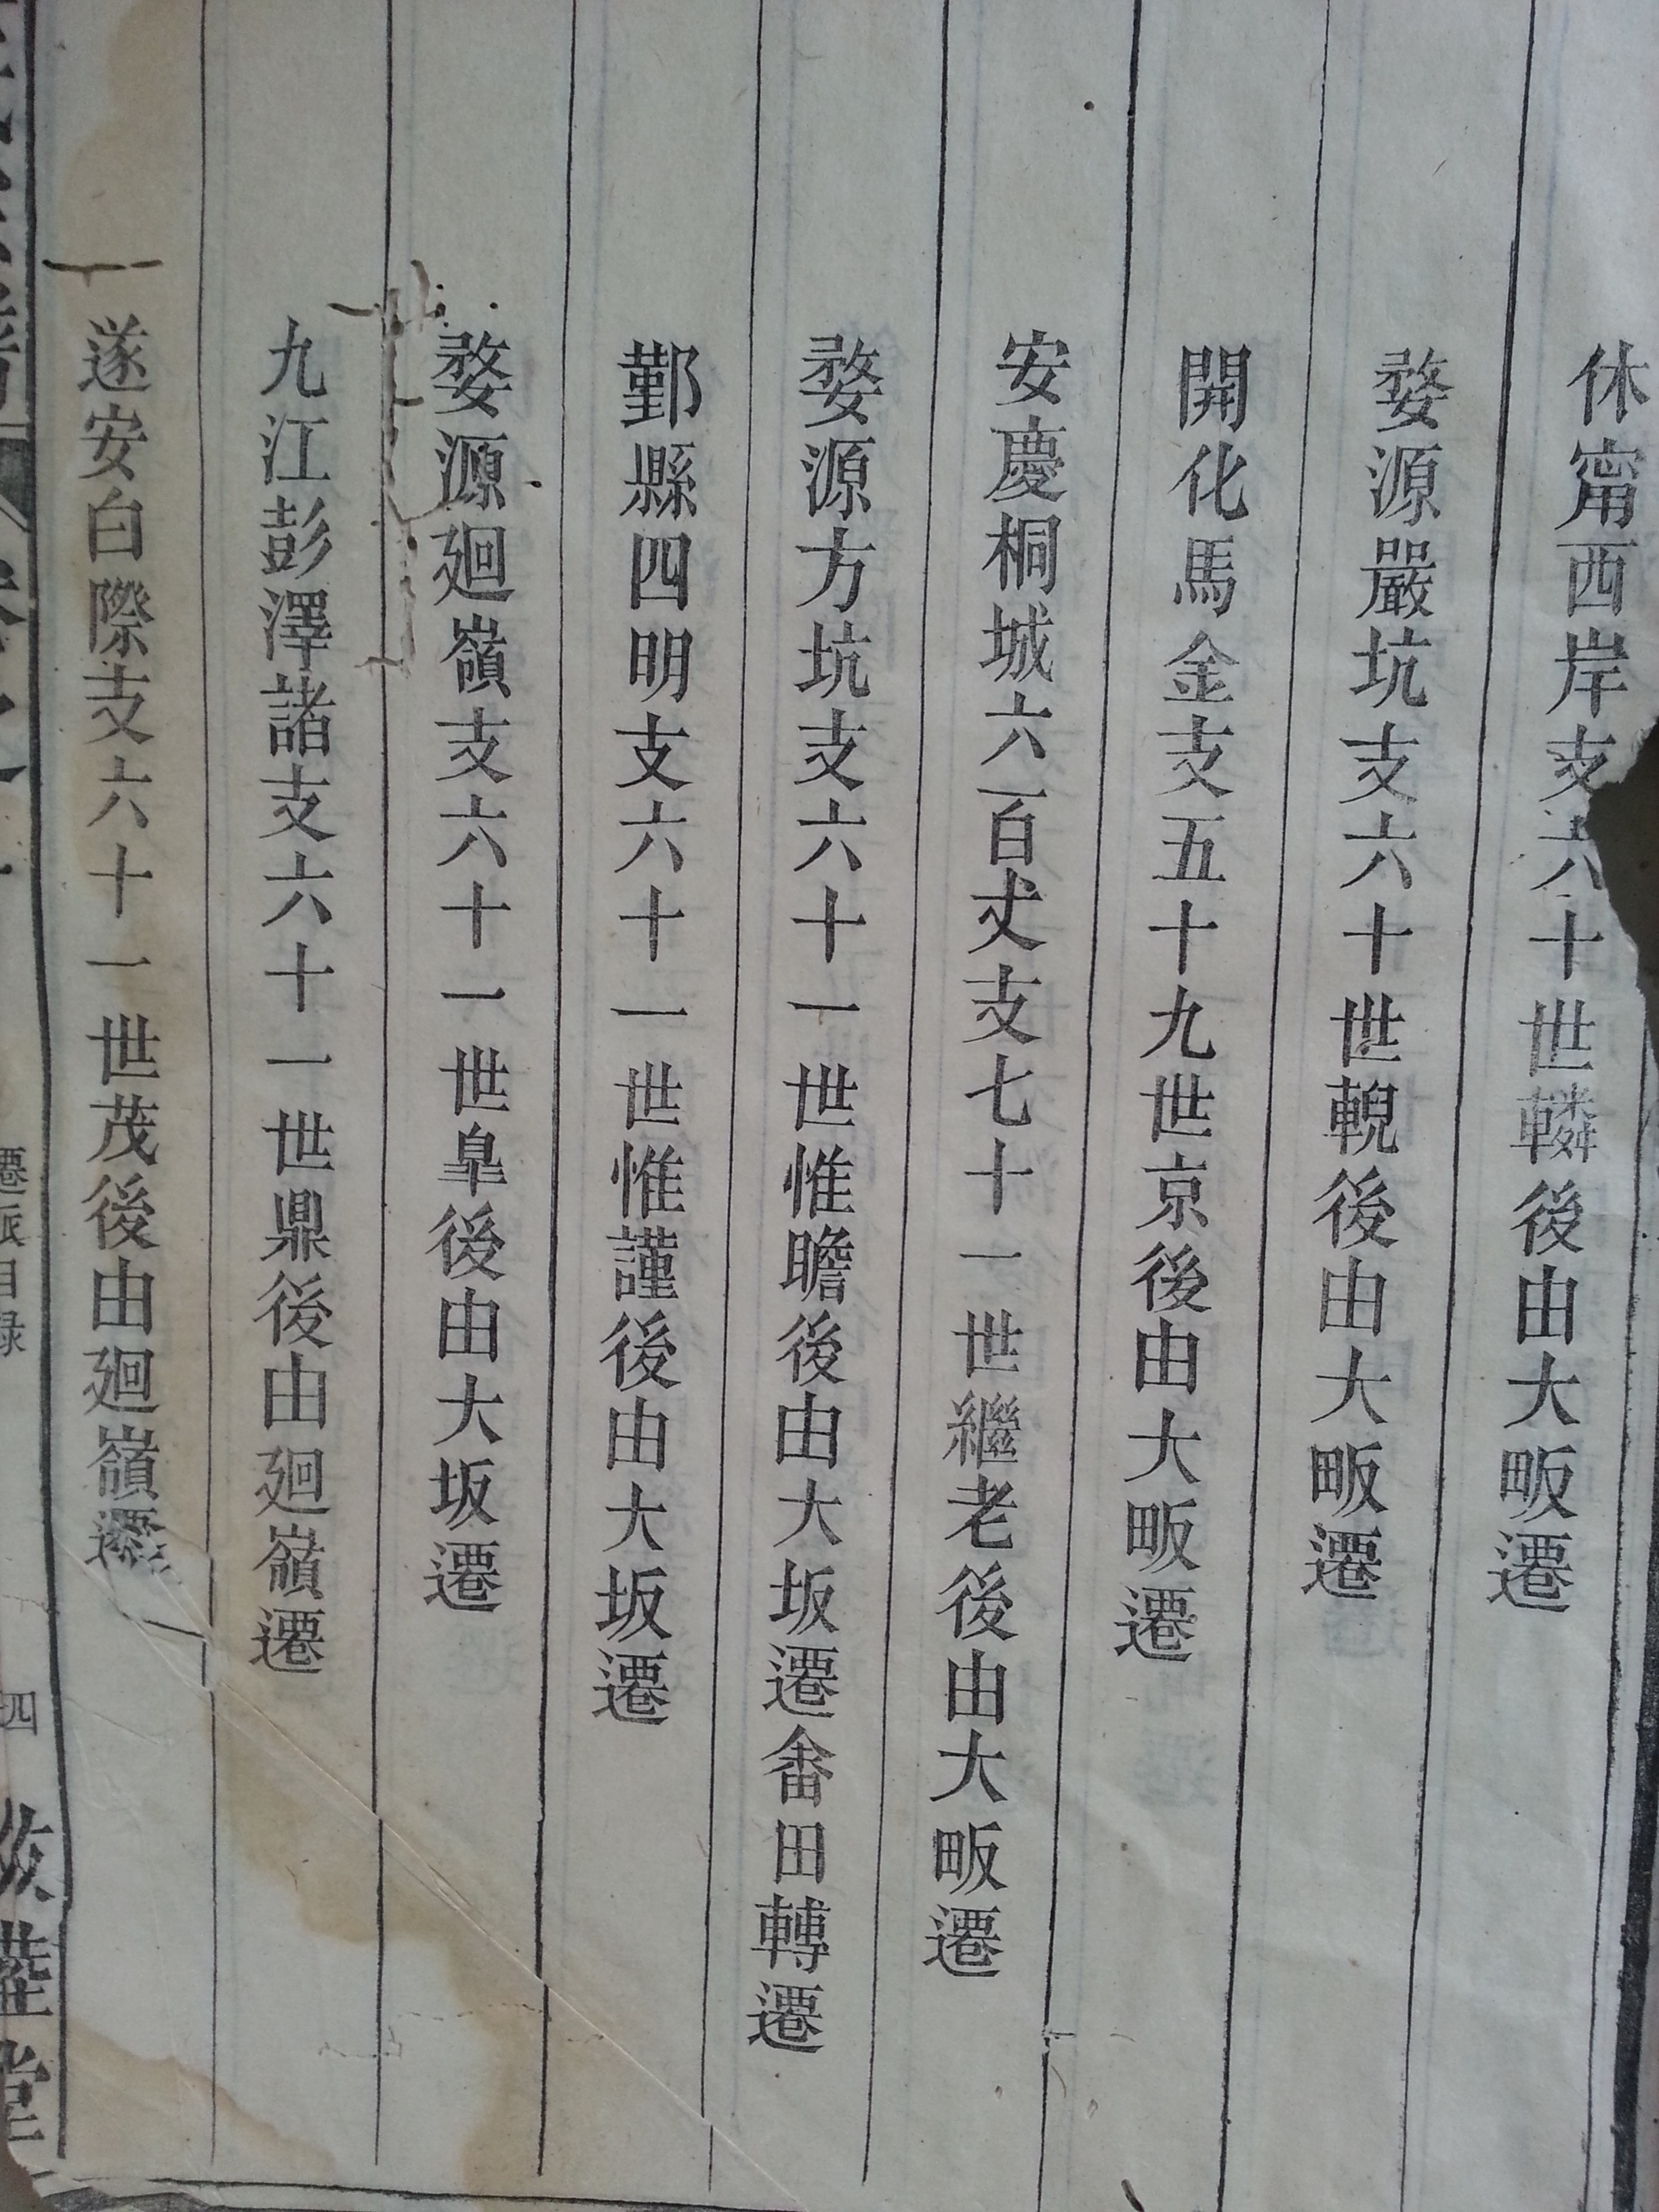 休甯西岸支六十世轔後由大畈遷
婺源嚴坑支六十世輗後由大畈遷
開化馬金支五十九世京後由大畈遷
安慶桐城六百丈支七十一世繼老後由大畈遷
婺源方坑支六十一世惟瞻後由大坂遷畬田轉遷
鄞縣四明支六十一世惟謹後由大坂遷
婺源廻嶺支六十一世臯後由大坂遷
九江彭澤諸支六十一世鼎後由廻嶺遷
遂安白際支六十一世茂後由廻嶺遷
遷派目録
四